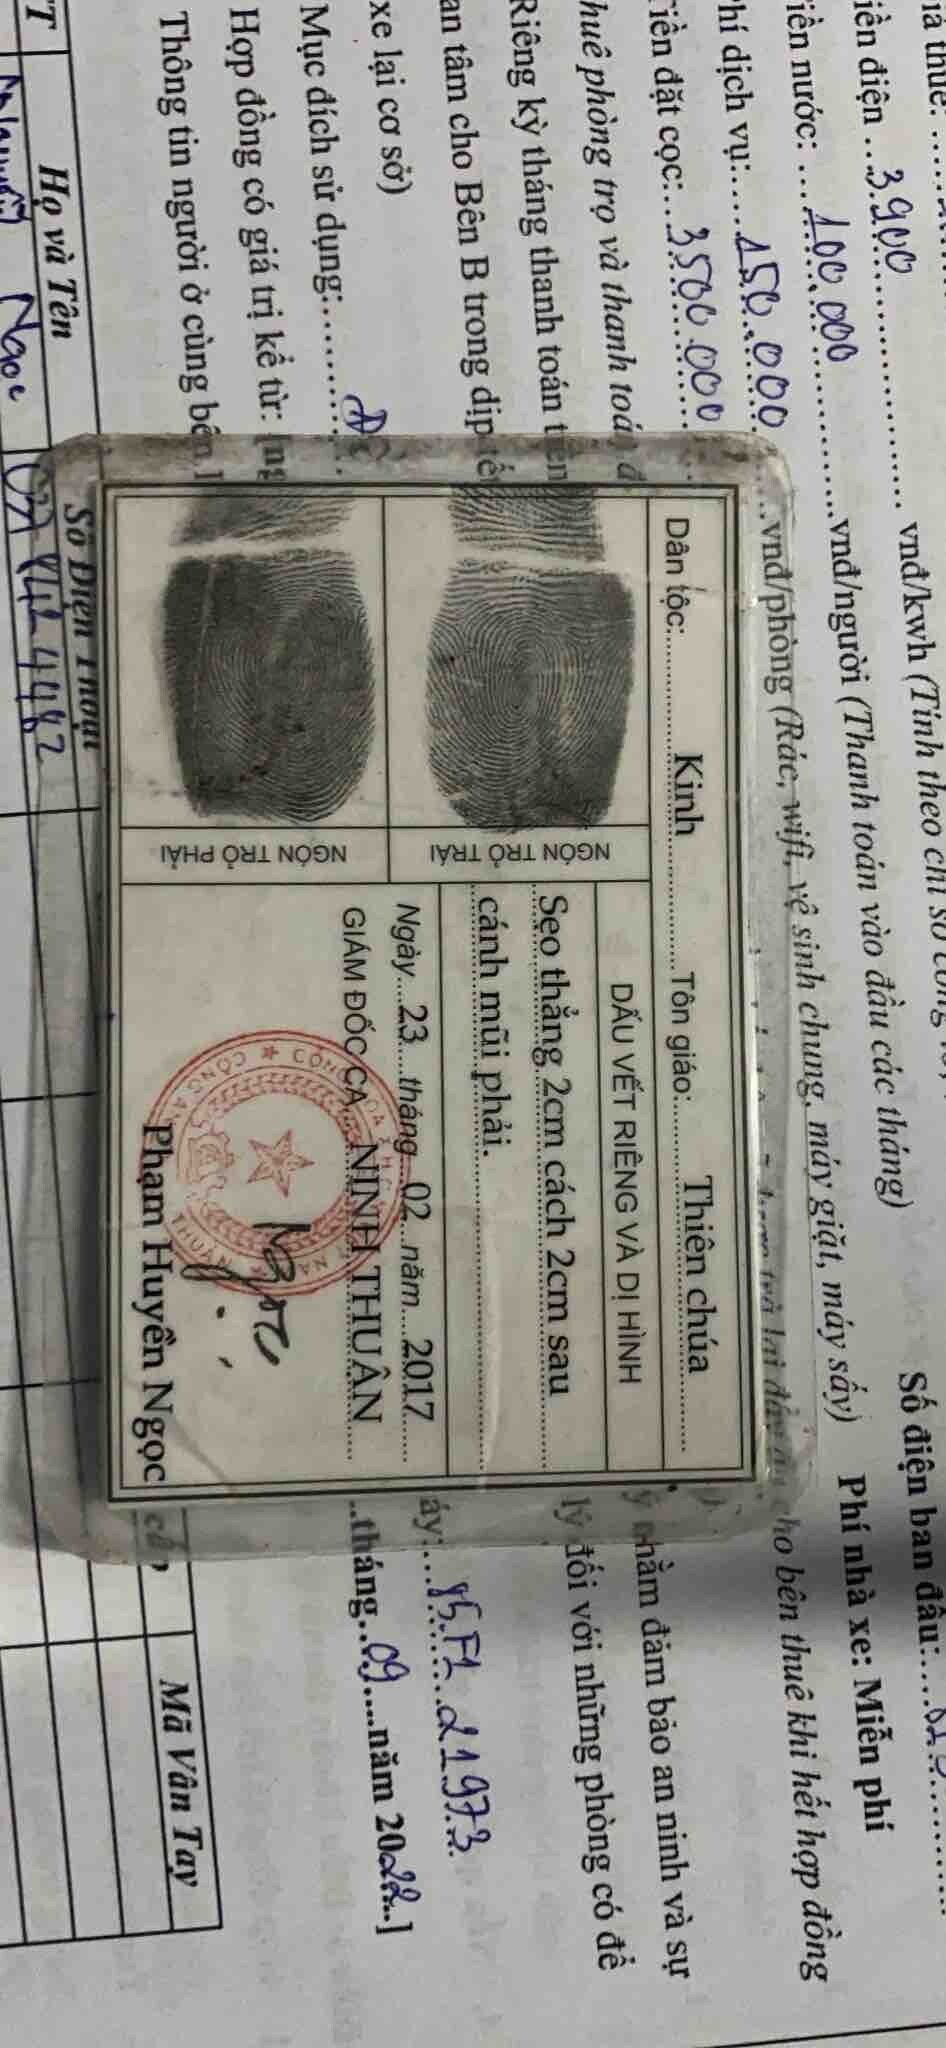 iền điện ...3.900........ vnđ/kwh (Tính theo chỉ số công
Số điện ban đầu:....
iền nước: ...100.000......vnđ/người (Thanh toán vào đầu các tháng)
Phí nhà xe: Miễn phí
hí dịch vụ:....150.000......vnđ/phòng (Rác, wifi, vệ sinh chung, máy giặt, máy sấy)
iền đặt cọc:...3500.000
cho bên thuê khi hết hợp đồng
huê phòng trọ và thanh toán
nhằm đảm bảo an ninh và sự
Riêng kỳ tháng thanh toán
lý đối với những phòng có để
an tâm cho Bên B trong dịp
xe lại cơ sở)
Mục đích sử dụng:
Hợp đồng có giá trị kể từ:
..tháng...09....năm 2022...]
Thông tin người ở cùng bên
Họ và Tên
Số Điện Thoại
Mã Vân Tay
Ngọc
Dân tộc: Kinh Tôn giáo: Thiên chúa
DẤU VẾT RIÊNG VÀ DỊ HÌNH
NGÓN TRỎ TRÁI
Sẹo thẳng 2cm cách 2cm sau
cánh mũi phải.
NGÓN TRỎ PHẢI
Ngày 23 tháng 02 năm 2017
GIÁM ĐỐC CA NINH THUẬN
Phạm Huyền Ngọc